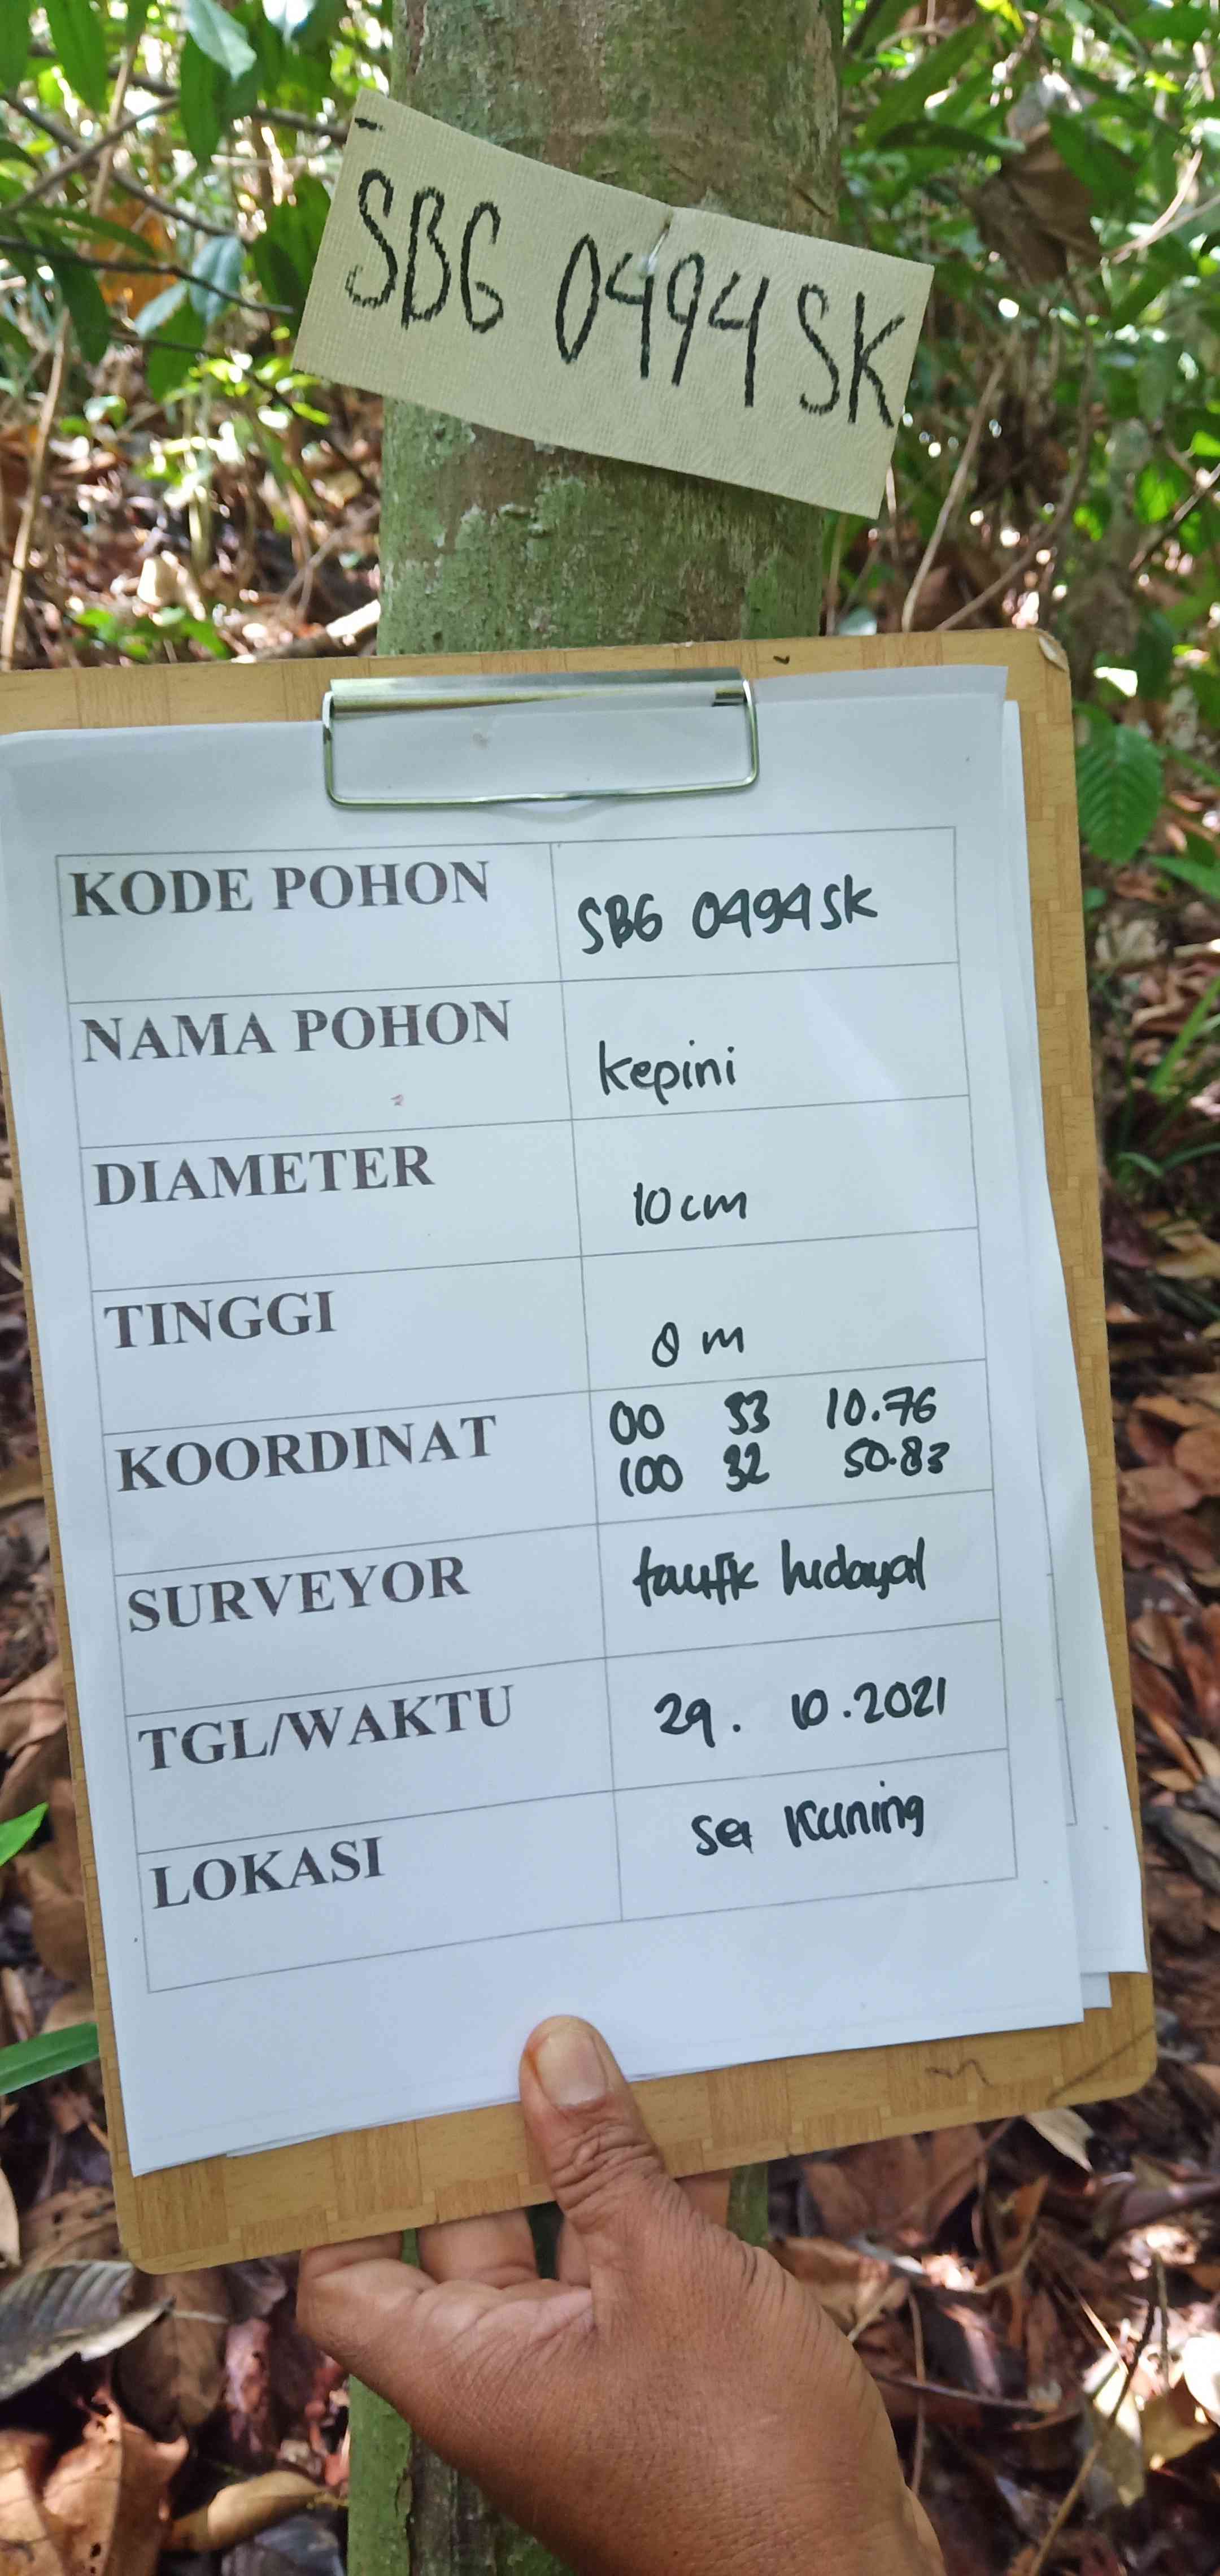 SBG 0494 SK
KODE POHON SBG 0494 SK
NAMA POHON kepini
DIAMETER 10 cm
TINGGI 8 m
KOORDINAT 00 33 10.76
100 32 50.83
SURVEYOR taufik hidayat
TGL/WAKTU 29. 10.2021
LOKASI Sei Kuning